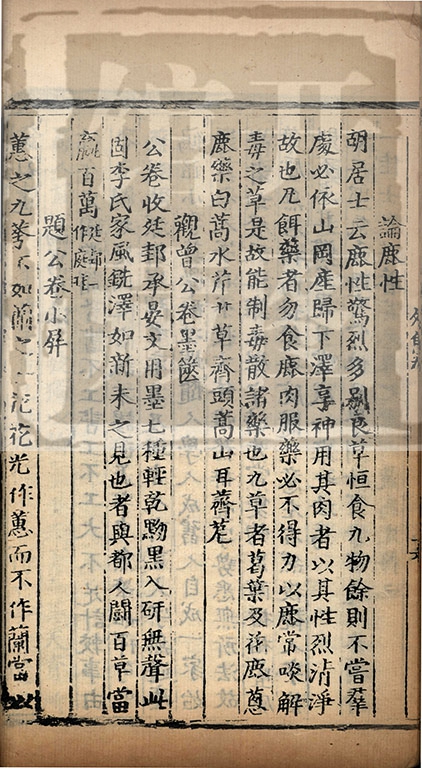 論鹿性
胡居士云鹿性驚烈多別良草恒食九物餘則不嘗羣
處必依山岡產歸下澤享神用其肉者以其性烈清淨
故也凡餌藥者勿食鹿肉服藥必不得力以鹿常啖解
毒之草是故能制毒散諸藥也九草者葛葉及花鹿蔥
鹿藥白蒿水芹甘草齊頭蒿山耳薺苨
觀曾公卷墨篋
公卷收廷邽承晏文用墨七種輕乾黝黑入研無聲此
固李氏家風銑澤如新未之見也者與都人鬭百草當
贏百萬
題公卷小屏
蕙之九華不如蘭之一花光作蕙而不作蘭當以